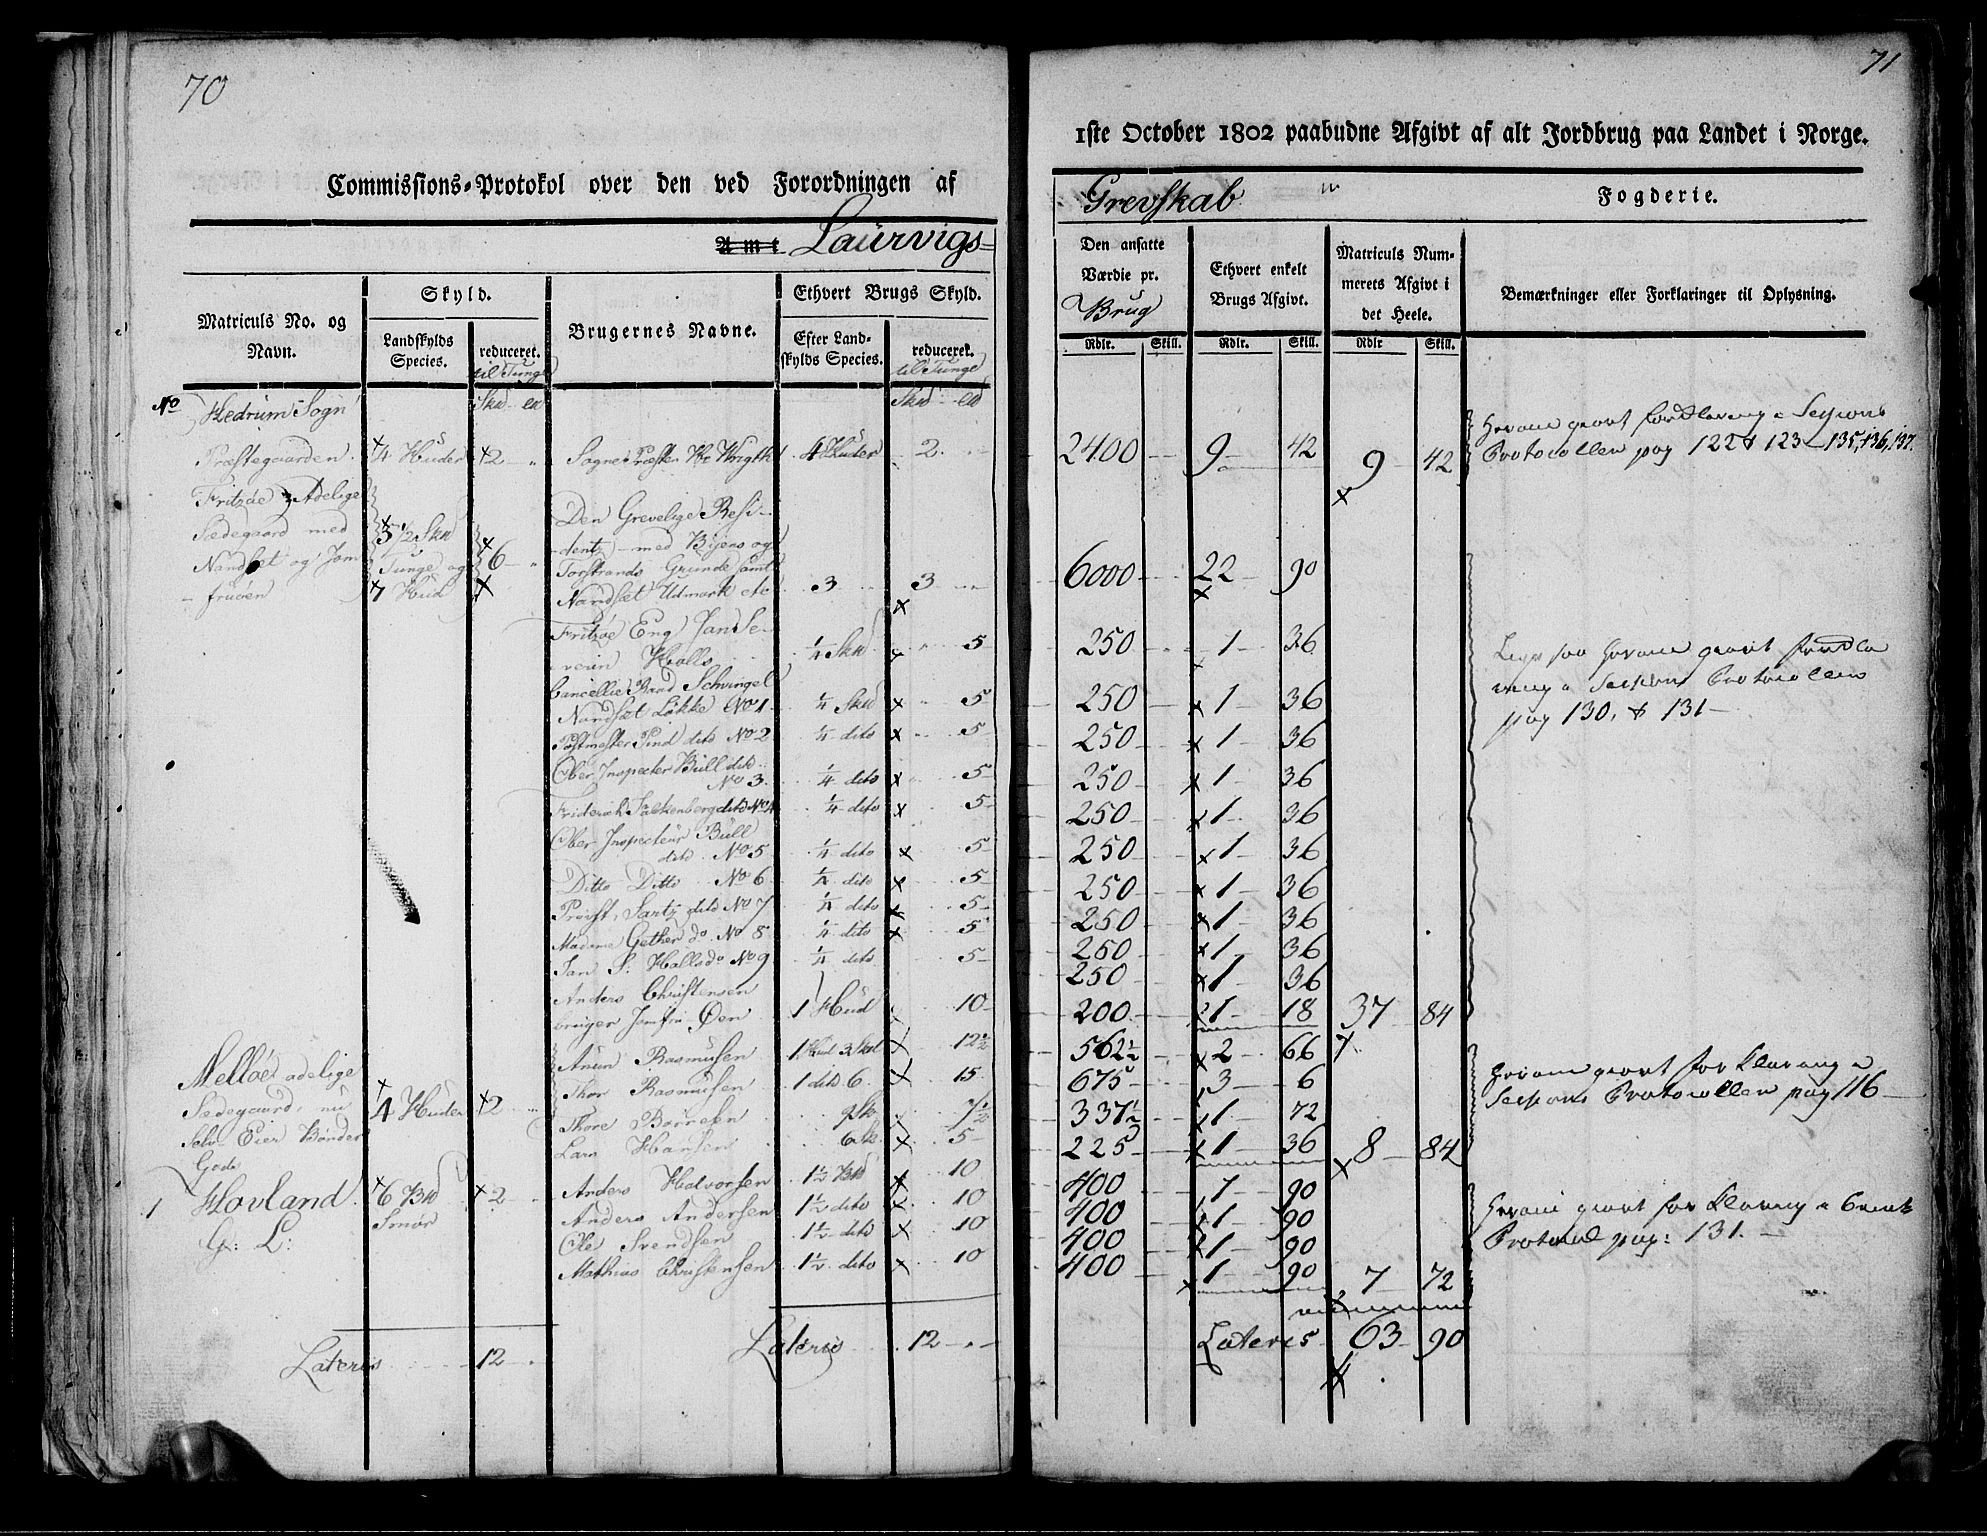 70
Commissions-Protokol over den ved Forordningen af
Amt Laurvigs-
Matriculs No. og Navn.
Skyld.
Landskylds Species.
reduceret. til Tunge
Brugernes Navne.
Ethvert Brugs Skyld.
Efter Landskylds Species.
reduceret. til Tunge
No Hedrum Sogn
Præstegaarden 4 Huder 2 Sogne Præst Hr Wrigth 4 Huder 2
Fritzöe Adelige
Sædegaard med 5 1/2 Skd
Nandset og Jom Tunge og 6
fruöen 1 Hud
Den Grevelige Resi-
dentz med Byens og
Torstrands Grunde samt
Nandset Udmark etc 3 3
Fritzöe Eng Jan Se-
verin Halls 1/4 Skd 5
Cancellie Raad Schvingel
Nandset Løkke No 1 1/4 Skd 5
Postmester Pind dito No 2 1/4 dito 5
Ober Inspecter Büll dito
No 3 1/4 dito 5
Friderich Falkenberg dito No 4 1/4 dito 5
Ober Inspecteur Büll
dito No 5 1/4 dito 5
Ditto Ditto No 6 1/4 dito 5
Provst Sartz dito No 7 1/4 dito 5
Madame Gether do No 8 1/4 dito 5
Jan S. Halls do No 9 1/4 dito 5
Anders Christensen
bruger Jomfru Øen 1 Hud 10
Melløe adelige
Sædegaard, nu 4 Huder 2
Selv Eier Bønder
Gods
Anun Rasmusen 1 Hud 3 Skd 12 1/2
Thor Rasmusen 1 dito 6 15
Thore Börresen 9 Sk 7 1/2
Lars Hansen 6 Sk 5
1 Hovland 6 Bd 2
G: L: Smör
Anders Halvorsen 1 1/2 Bd 10
Anders Andersen 1 1/2 dito 10
Ole Svendsen 1 1/2 dito 10
Mathias Christensen 1 1/2 dito 10
Lateris 12 Lateris 12
71
1ste October 1802 paabudne Afgivt af alt Jordbrug paa Landet i Norge.
Grevskab Fogderie.
Den ansatte Værdie pr. Brug
Ethvert enkelt Brugs Afgivt.
Matriculs Nummerets Afgivt i det Heele.
Bemærkninger eller Forklaringer til Oplysning.
Rdlr. Skill. Rdlr. Skill. Rdlr Skill.
2400 9 42 9 42
Herom giort forklaring i Sessions
Protocollen pag 122 & 123 - 135, 136, 137.
6000 22 90
250 1 36
250 1 36
250 1 36
250 1 36
250 1 36
250 1 36
250 1 36
250 1 36
250 1 36
250 1 36
200 1 18 37 84
Lige saa herom giort forkla
ring i Sessions Protocollen
pag 130, & 131
562 1/2 2 66
675 3 6
337 1/2 1 72
225 1 36 8 84
Herom giort forklaring i
Sessions Protocollen pag 116
400 1 90
400 1 90
400 1 90
400 1 90 7 72
Herom giort forklaring i
Protocol pag: 131.
Lateris 63 90